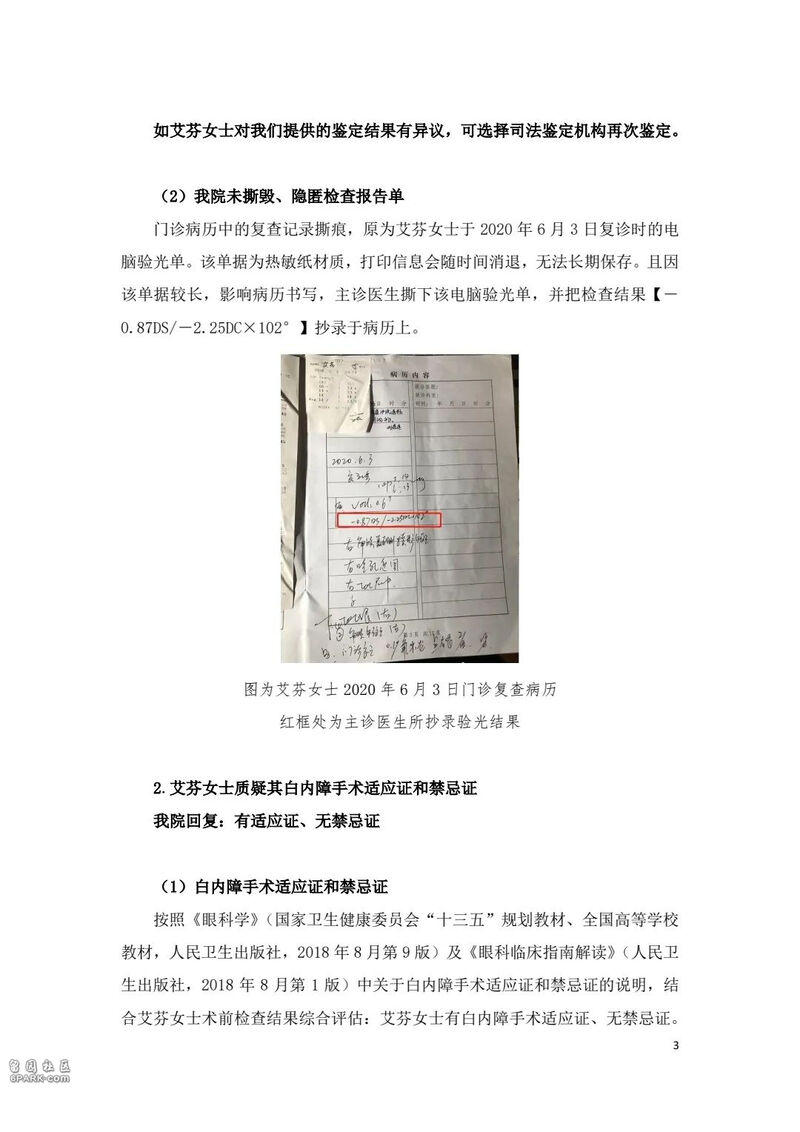 如艾芬女士对我们提供的鉴定结果有异议，可选择司法鉴定机构再次鉴定。
（2）我院未撕毁、隐匿检查报告单
门诊病历中的复查记录撕痕，原为艾芬女士于 2020 年 6 月 3 日复诊时的电
脑验光单。该单据为热敏纸材质，打印信息会随时间消退，无法长期保存。且因
该单据较长，影响病历书写，主诊医生撕下该电脑验光单，并把检查结果【－
0.87DS/－2.25DC×102°】抄录于病历上。
病 历 内 容
2020.6.3
图为艾芬女士 2020 年 6 月 3 日门诊复查病历
红框处为主诊医生所抄录验光结果
2.艾芬女士质疑其白内障手术适应证和禁忌证
我院回复：有适应证、无禁忌证
（1）白内障手术适应证和禁忌证
按照《眼科学》（国家卫生健康委员会“十三五”规划教材、全国高等学校
教材，人民卫生出版社，2018 年 8 月第 9 版）及《眼科临床指南解读》（人民卫
生出版社，2018 年 8 月第 1 版）中关于白内障手术适应证和禁忌证的说明，结
合艾芬女士术前检查结果综合评估：艾芬女士有白内障手术适应证、无禁忌证。
3
留园社区
6PARK.com